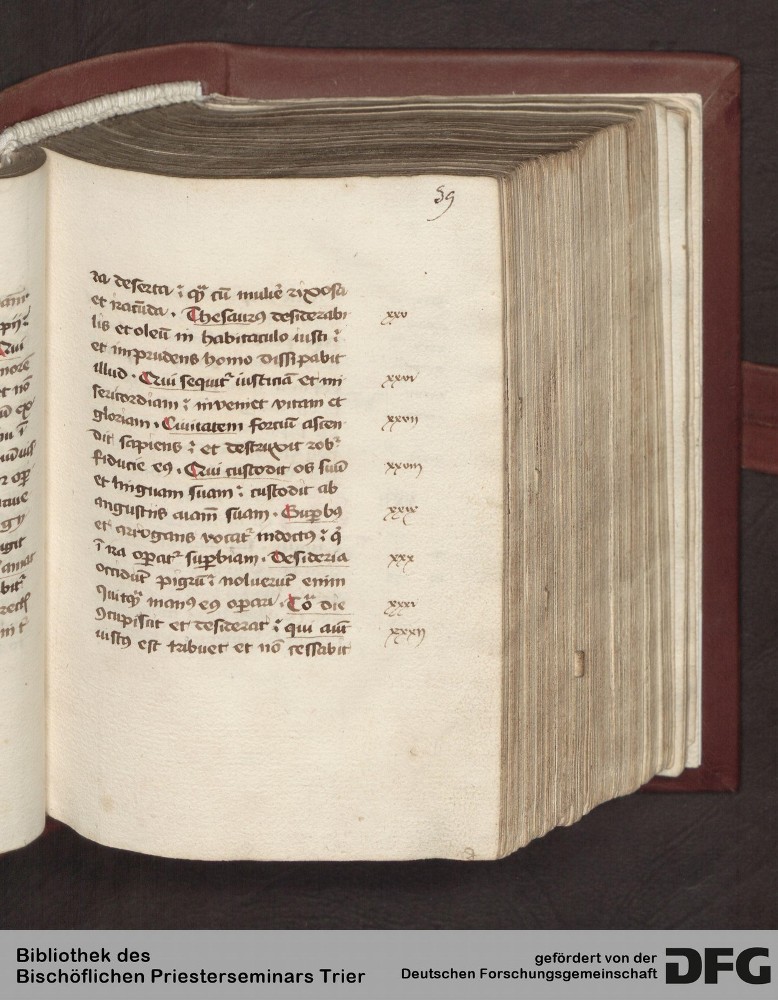 59
ra deserta : q̄ȝ cū muliē rixosa
et iracūda . Thesaurꝯ desiderabi xxv
lis et oleū in habitaculo iusti :
et imprudens homo dissipabit
illud . Qui sequit᷑ iusticiā et mi xxvi
sericordiam : inveniet vitam et
gloriam . Civitatem fortiū ascen xxvii
dit sapiens : et destruxit rob᷑
fiducie eꝯ . Qui custodit os suū xxviii
et linguam suam : custodit ab
angustiis aīam suam . Supbꝯ xxix
et arrogans vocat᷑ indoctꝯ : q̇
ī ira opat᷑ supbiam . Desideria xxx
occidūt pigrū : noluerūt enim
quitqȝ manꝯ eꝯ opari . Tōᵃ die xxxi
ꝯcupiscit et desiderat : qui aūt xxxii
iustꝯ est tribuet et nō cessabit
Bibliothek des
Bischöflichen Priesterseminars Trier
gefördert von der
Deutschen Forschungsgemeinschaft
DFG